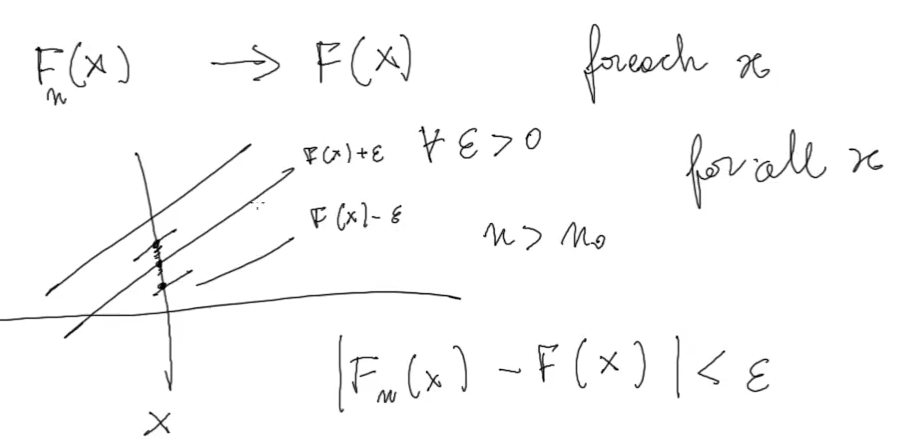 Fn(x) → F(x) foreach x
F(x)+ε ∀ ε > 0
for all x
F(x)-ε
n > n₀
|Fn(x) - F(x)| < ε
x